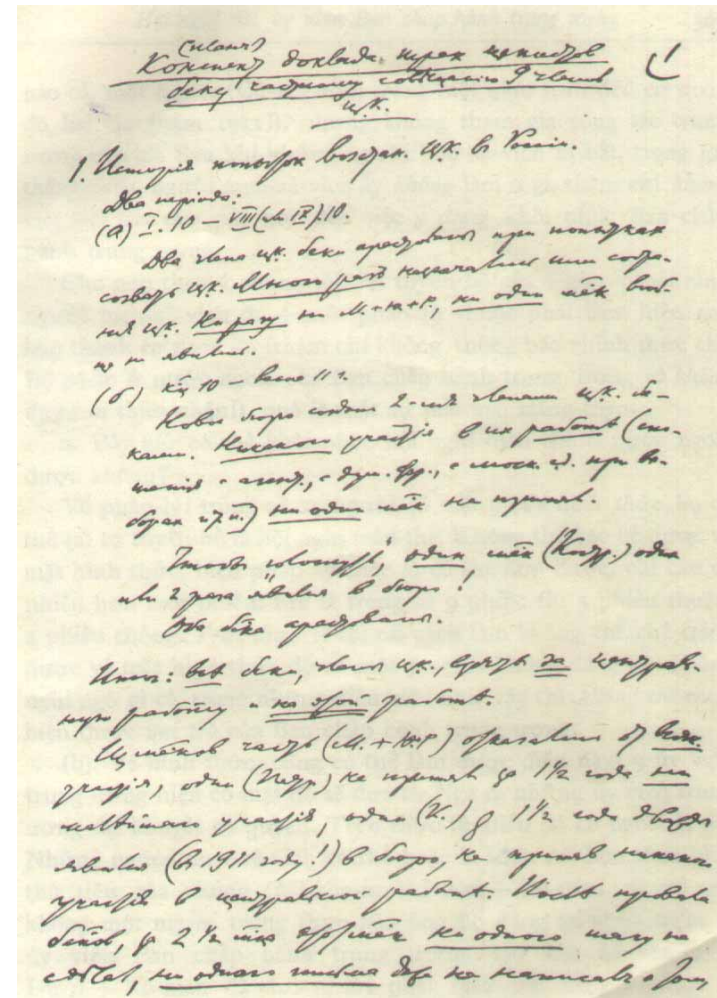 (план)
Конспект доклада трех цекистов
беку частному совещанию 9 членов
ЦК.
1
1. История попыток восстан. ЦК. в России.
Два периода:
(а) I. 10 – VIII (или IX). 10.
Два члена цк. беки арестованы при попытках
созвать цк. Много раз назначались ими собра-
ния цк. Ни разу ни М. + и + р. ни один мек вооб-
ще не явились.
(б) кц 10 – весна 11.
Новое бюро создают 2-мя членами цк. бе-
ками. Никакого участия в их работе (сно-
шения с агент., с дум. фр., с моск. при вы-
борах и т. п.) ни один мек не принял.
Этот один мек (Костр.) один
или 2 раза являлся в бюро.
Оба бека арестованы.
Итог: все беки, члены цк., взяты за централь-
ную работу и на этой работе.
Из меков часть (М. + и + р) отказались от всяк.
участия, один (Петр.) не принял за 1½ года ни
малейшего участия один (К.) за 1½ года дважды
явился (в 1911 году!) в бюро, не приняв никакого
участия в центральной работе. После провала
беков, за 2½ мес этот мек ни одного шагу не
сделал, ни одного письма даже не написал о